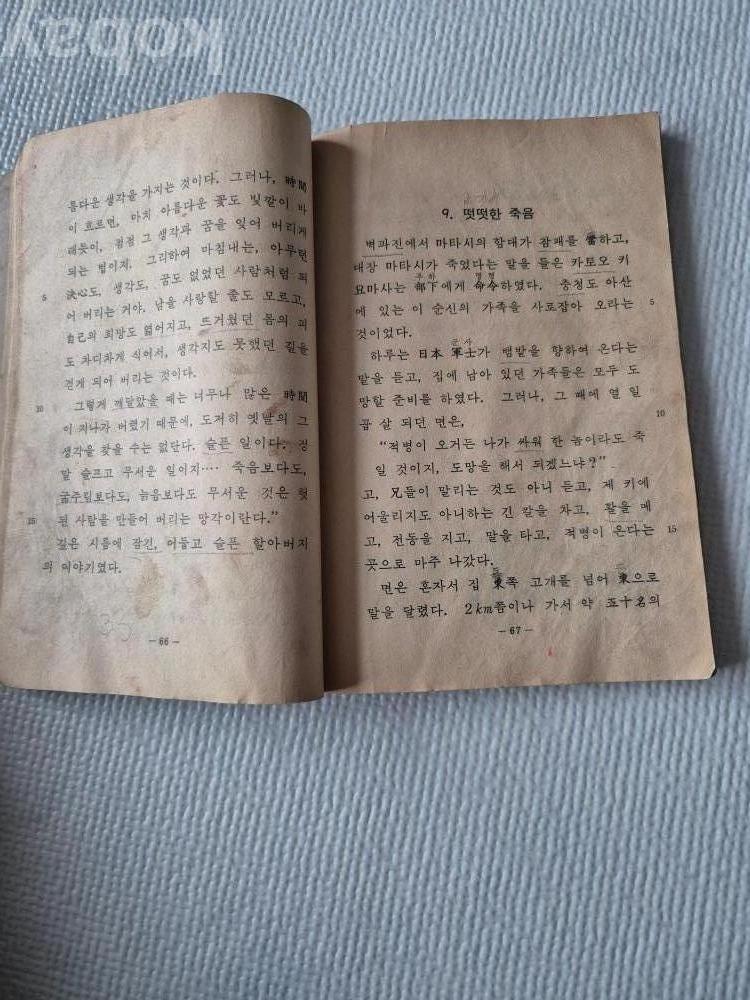 kobay
름다운 생각을 가지는 것이다. 그러나, 時間
이 흐르면, 마치 아름다운 꽃도 빛깔이 바
래듯이, 점점 그 생각과 꿈을 잊어 버리게
되는 법이지. 그리하여 마침내는, 아무런
5 決心도, 생각도, 꿈도 없었던 사람처럼 되
어 버리는 거야. 남을 사랑할 줄도 모르고,
自己의 희망도 엷어지고, 뜨거웠던 몸의 피
도 차디차게 식어서, 생각지도 못했던 길을
걷게 되어 버리는 것이다.
10 그렇게 깨달았을 때는 너무나 많은 時間
이 지나가 버렸기 때문에, 도저히 옛날의 그
생각을 찾을 수는 없단다. 슬픈 일이다. 정
말 슬프고 무서운 일이지…. 죽음보다도,
굶주림보다도, 늙음보다도 무서운 것은 헛
15 된 사람을 만들어 버리는 망각이란다.”
깊은 시름에 잠긴, 어둡고 슬픈 할아버지
의 이야기였다.
33
— 66 —
9. 떳떳한 죽음
벽파진에서 마타시의 함대가 참패를 當하고,
대장 마타시가 죽었다는 말을 들은 카토오 키
부하 명령
요마사는 部下에게 命令하였다. 충청도 아산
에 있는 이 순신의 가족을 사로잡아 오라는 5
것이었다.
군사
하루는 日本 軍士가 뱀밭을 향하여 온다는
말을 듣고, 집에 남아 있던 가족들은 모두 도
망할 준비를 하였다. 그러나, 그 때에 열 일
곱 살 되던 면은, 10
“적병이 오거든 나가 싸워 한 놈이라도 죽
일 것이지, 도망을 해서 되겠느냐?”
고, 兄들이 말리는 것도 아니 듣고, 제 키에
어울리지도 아니하는 긴 칼을 차고, 활을 메
고, 전동을 지고, 말을 타고, 적병이 온다는 15
곳으로 마주 나갔다.
면은 혼자서 집 東쪽 고개를 넘어 東으로
말을 달렸다. 2km쯤이나 가서 약 五十名의
— 67 —